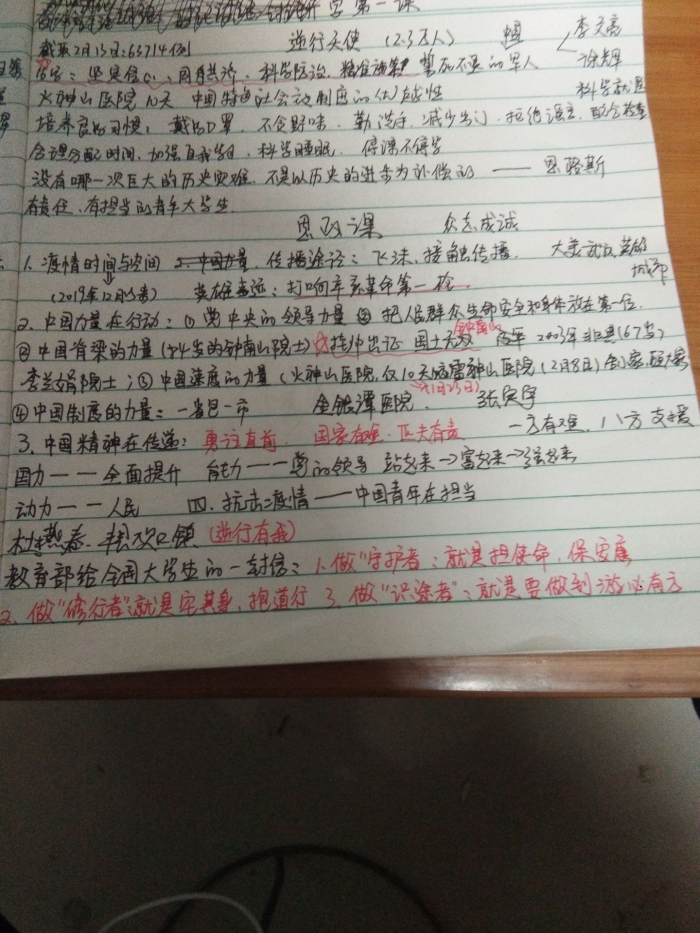 学第一课
截至2月15日:65714例 逆行天使 (2.3万人) 李文亮
国家:坚定信心、同舟共济、科学防治、精准施策 誓死不退的军人 徐辉
火神山医院 10天 中国特色社会主义制度的优越性 科学就是
培养良好习惯:戴好口罩、不食野味、勤洗手、减少出门、拒绝谣言、配合检查
合理分配时间、加强自我学习、科学睡眠、停课不停学
没有哪一次巨大的历史灾难、不是以历史的进步为补偿的 —— 恩格斯
有责任、有担当的青年大学生
思政课 众志成诚
1、疫情时间与空间 2、中国力量 传播途径:飞沫、接触传播 大美武汉 英雄城市
(2019年12月8号) 英雄命运:打响辛亥革命第一枪
2、中国力量在行动:①党中央的领导力量 ②把人民群众生命安全和身体放在第一位
②中国脊梁的力量(84岁的钟南山院士)挂帅出征 国士无双 钟南山 2003年非典(67岁)
李兰娟院士;③中国速度的力量(火神山医院、仅10天 雷神山医院(2月8日)
(1月23日)
④中国制度的力量:一省包一市 金银潭医院、张定宇
3、中国精神在传递:勇往直前、国家有难、匹夫有责 一方有难,八方支援
国力——全面提升 能力——党的领导 站起来→富起来→强起来
动力——人民 四、抗击疫情——中国青年在担当
(逆行有我)
教育部给全国大学生的一封信:1、做"守护者":就是担使命、保安康
2、做"修行者":就是宅其身、抱道行 3、做"识途者":就是要做到游必有方